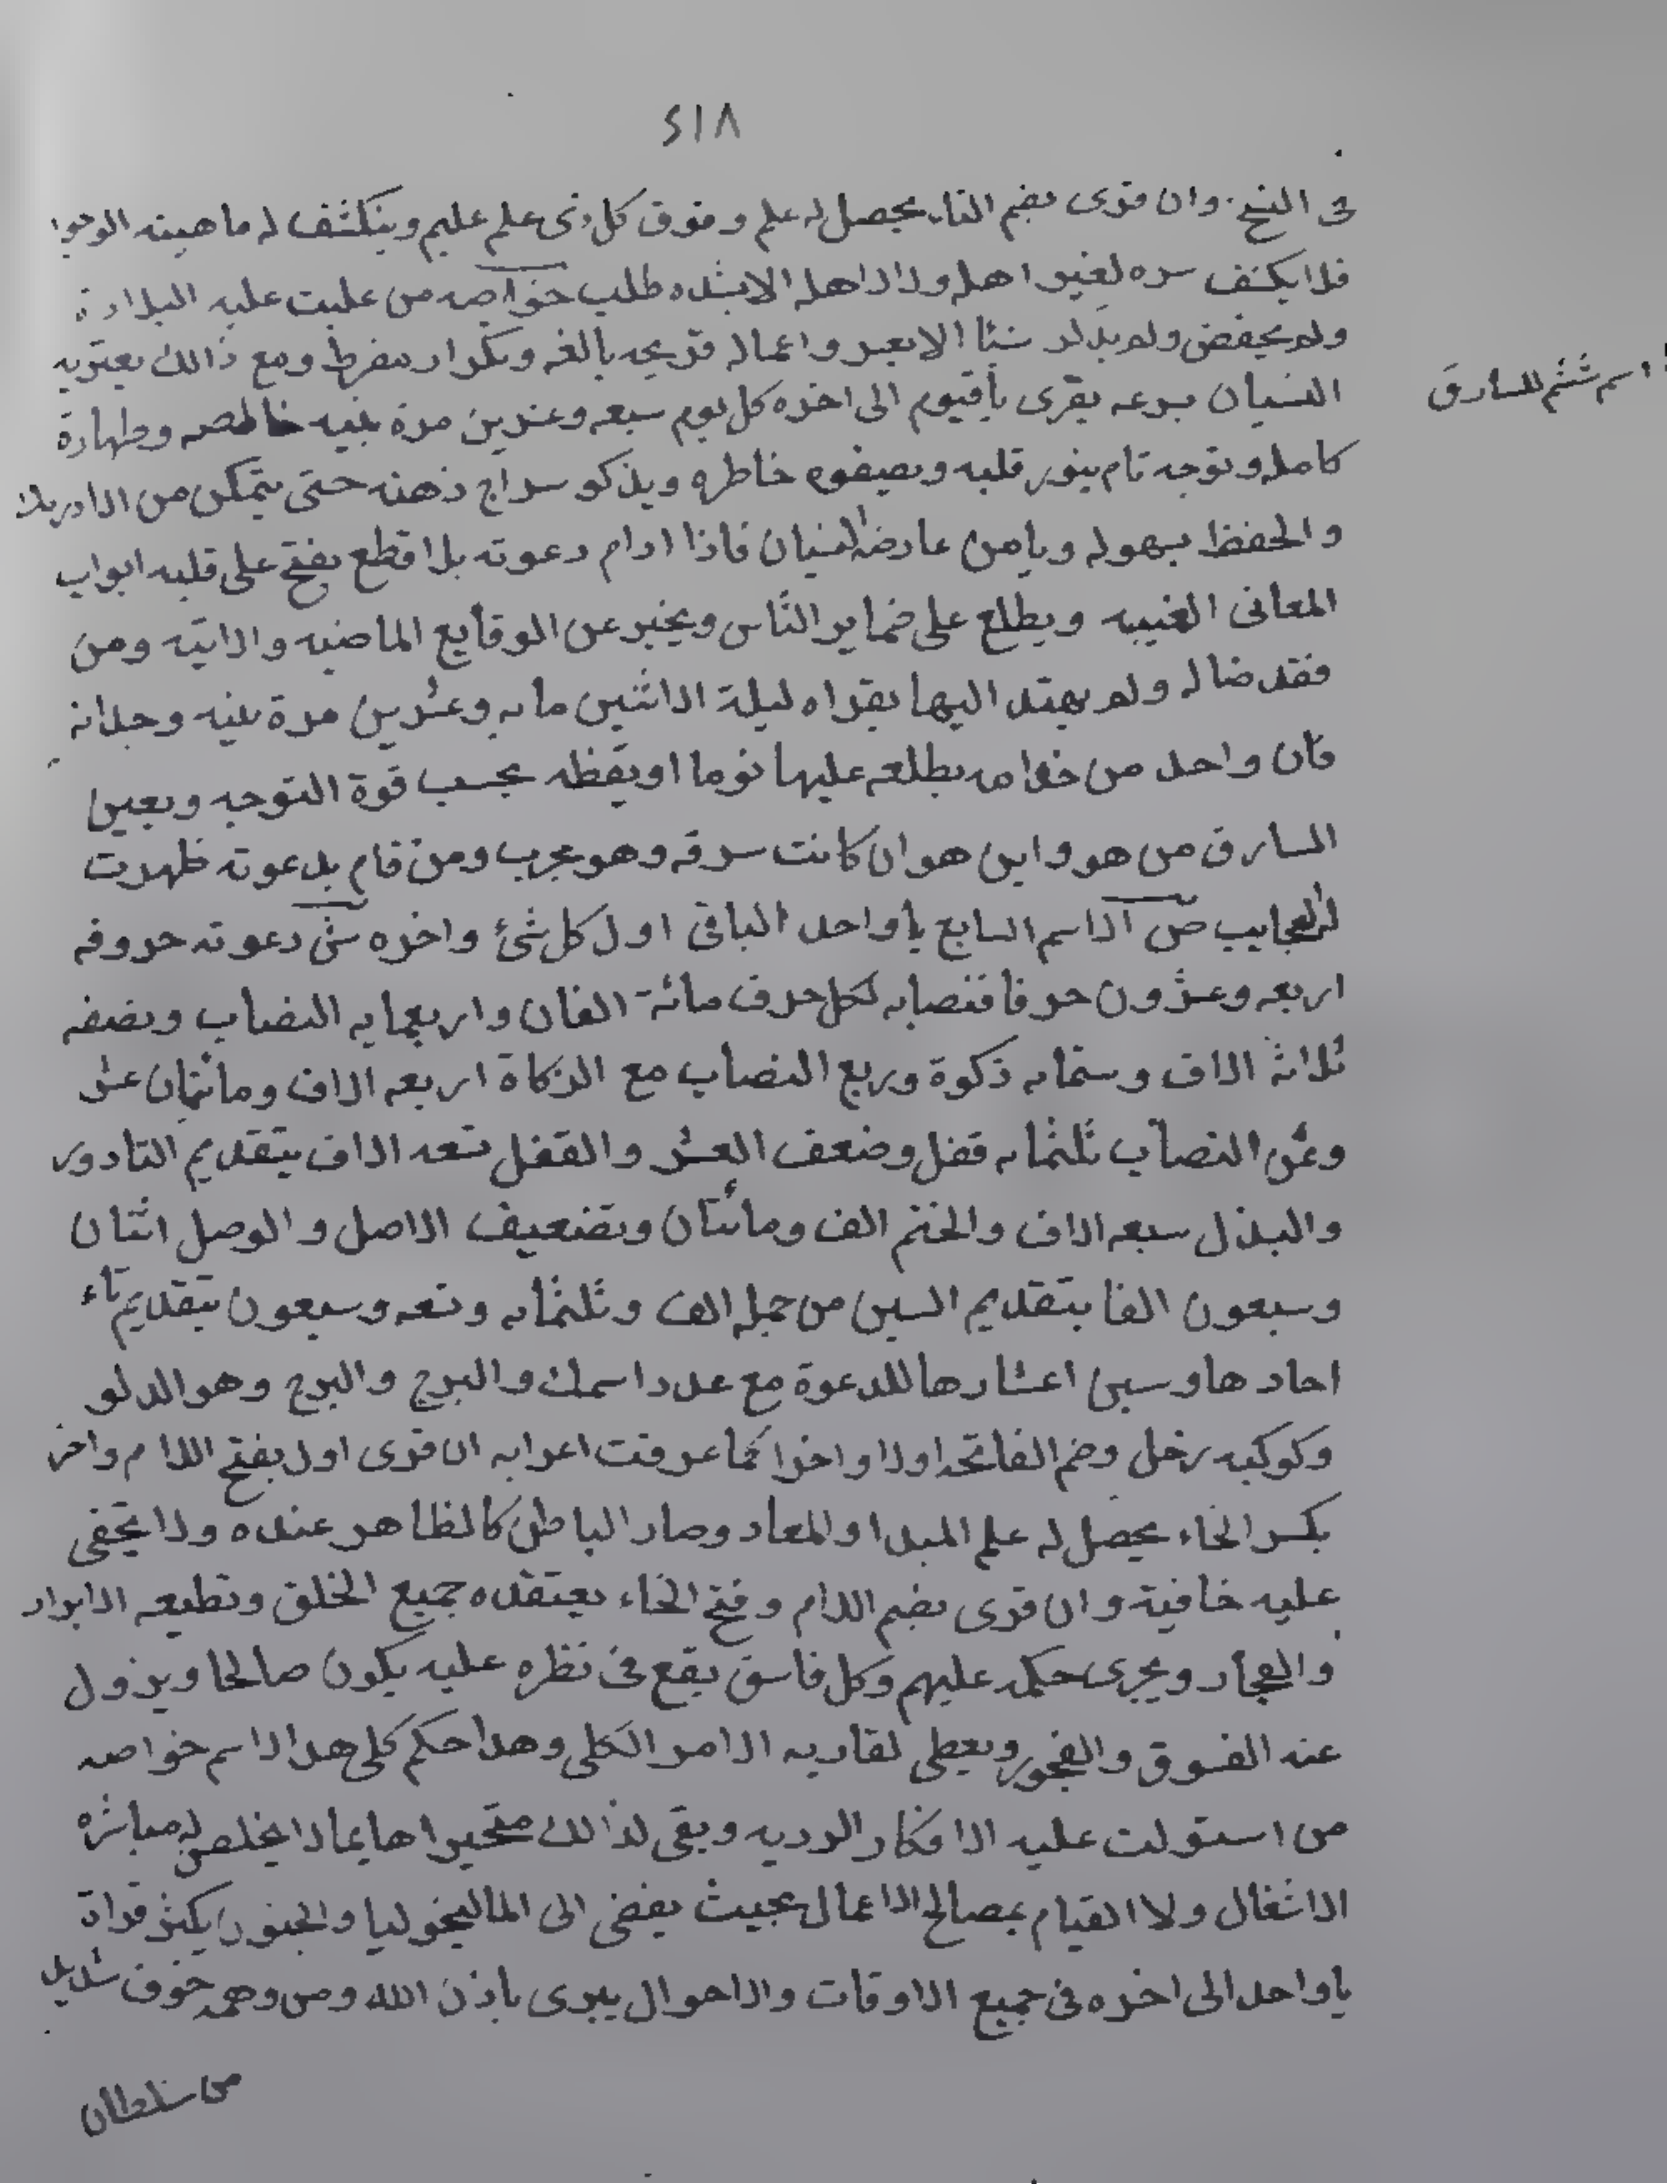 ٤١٨
فى النسخ وان قرى بضم التاء يحصل له علم وفوق كل ذى علم عليم وينكشف له ماهيته الوجود
فلا يكشف سره لغير اهله ولا لاهله الا بشده طلب خواصه من غلبت عليه البلادة
ولم يحفض ولم يدلد شئا الا بعسر واعمال قريحه بالغه وتكرار مفرط ومع ذالك يعتريه
اسم ششم للسارق
النسيان بسرعه يقرى ياقيوم الى اخره كل يوم سبعه وعشرين مرة بنيه خالصه وطهارة
كامله وتوجه تام ينور قلبه ويصفوه خاطره ويذكو سراج ذهنه حتى يتمكن من الادراك
والحفظ بسهوله ويامن عارض النسيان فاذا ادام دعوته بلا قطع يفتح على قلبه ابواب
المعانى الغيبيه ويطلع على ضماير النّاس ويخبر عن الوقايع الماضيه والاتيه ومن
فقد ضاله ولم يهتد اليها يقراه ليلة الاثنين مايه وعشرين مرة بنيه وجدانه
فان واحد من خدامه يطلعه عليها نوما او يقظه بحسب قوة التوجه ويعين
السارق من هو واين هو ان كانت سرقه وهو مجرب ومن قام بدعوته ظهرت
له العجايب ص الاسم السابع ياواحد الباقى اول كل شئ واخره ش دعوته حروفه
اربعه وعشرون حرفا فنصابه لكل حرف مائة الفان واربعمايه النصاب ونصفه
ثلاثة الاف وستمايه ذكوة وربع النصاب مع الزكاة اربعه الاف ومائتان عشر
وثمن النصاب ثلثمايه قفل وضعف العشر والقفل تسعه الاف بتقديم التا دور
والبذل سبعه الاف والختم الف ومائتان وبتضعيف الاصل والوصل اثنان
وسبعون الفا بتقديم السين من جمله الف وثلثمايه وتسعه وسبعون بتقديم تاء
احادها وسين اعشارها للدعوة مع عدد اسمك والبرج والبرج وهو الدلو
وكوكبه زحل وضم الفاتحه اولا واخرا كما عرفت اعرابه ان قرى اول بفتح اللام واخر
بكسر الخاء يحصل له علم المبدا والمعاد وصار الباطن كالظاهر عنده ولا يخفى
عليه خافية وان قرى بضم اللام وفتح الخاء يعتقده جميع الخلق وتطيعه الابرار
والفجار ويجرى حكمه عليهم وكل فاسق يقع فى نظره عليه يكون صالحا ويزول
عنه الفسوق والفجور ويعطى لقاريه الامر الكلى وهذا حكم كلى هذا الاسم خواصه
من استولت عليه الافكار الرديه وبقى لذالك متحيرا هايما لا يخلص له مباشره
الاشغال ولا القيام بمصالح الاعمال بحيث يفضى الى الماليخوليا والجنون يكثر قراة
ياواحد الى اخره فى جميع الاوقات والاحوال يبرى باذن الله ومن وهمه خوف شديد
من سلطان